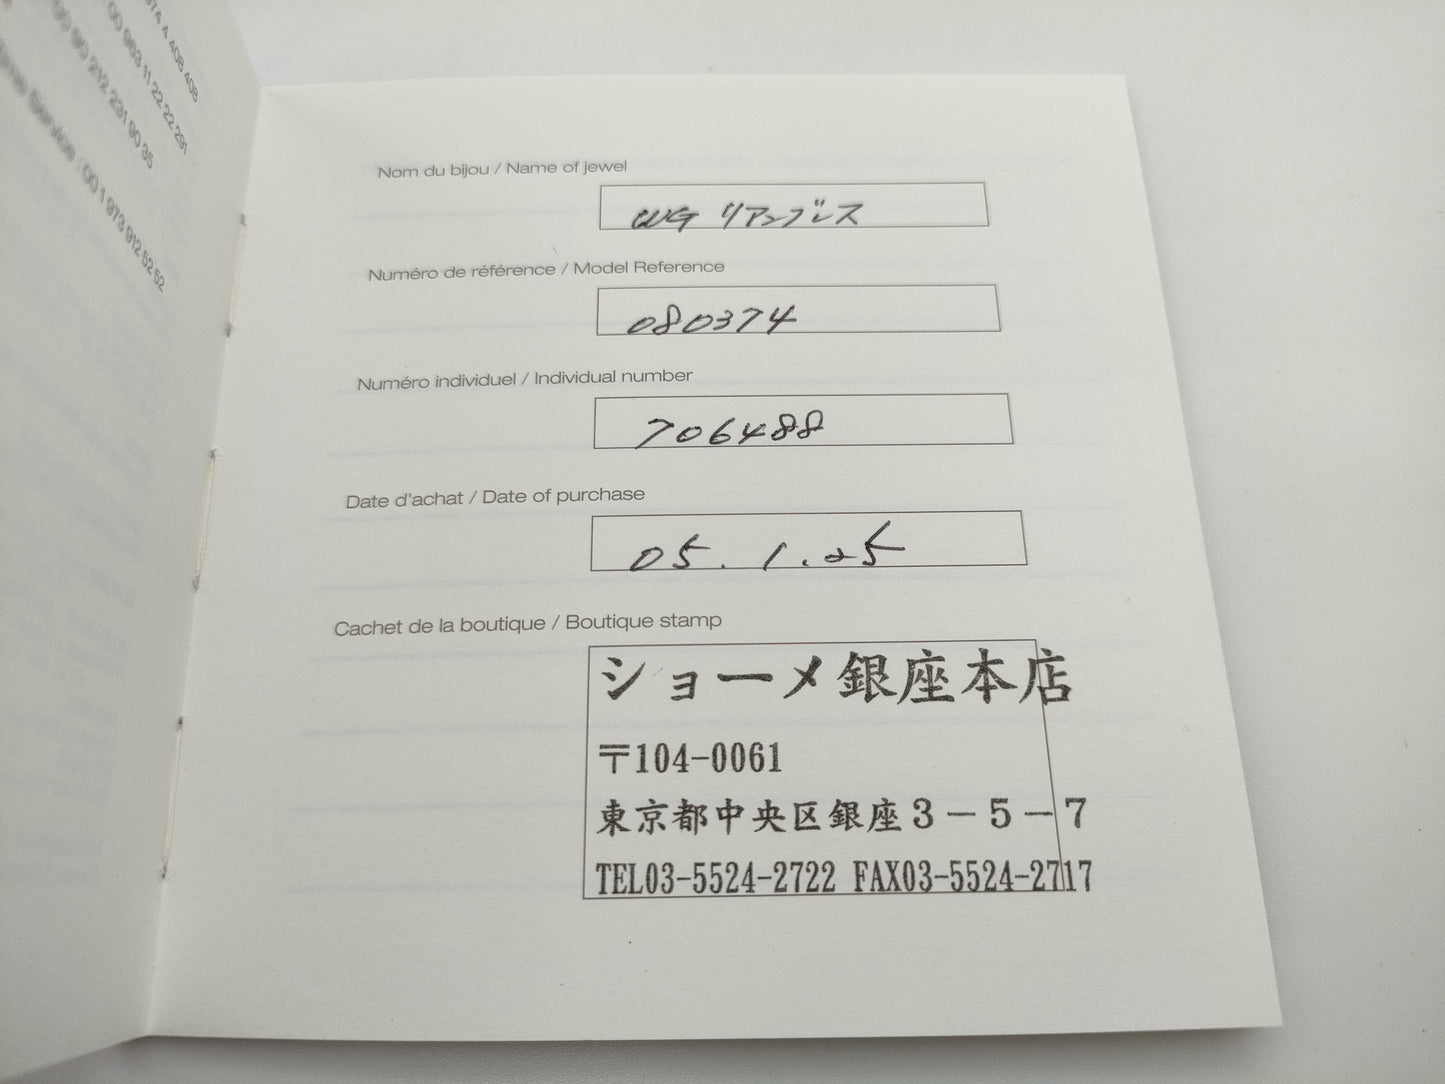 374 4 408 408
00 963 11 22 22 291
00 90 212 231 90 35
Service : 00 1 973 912 52 52
Nom du bijou / Name of jewel
WG リアンブレス
Numéro de référence / Model Reference
080374
Numéro individuel / Individual number
706488
Date d'achat / Date of purchase
05. 1. 25
Cachet de la boutique / Boutique stamp
ショーメ銀座本店
〒104-0061
東京都中央区銀座3-5-7
TEL03-5524-2722 FAX03-5524-2717